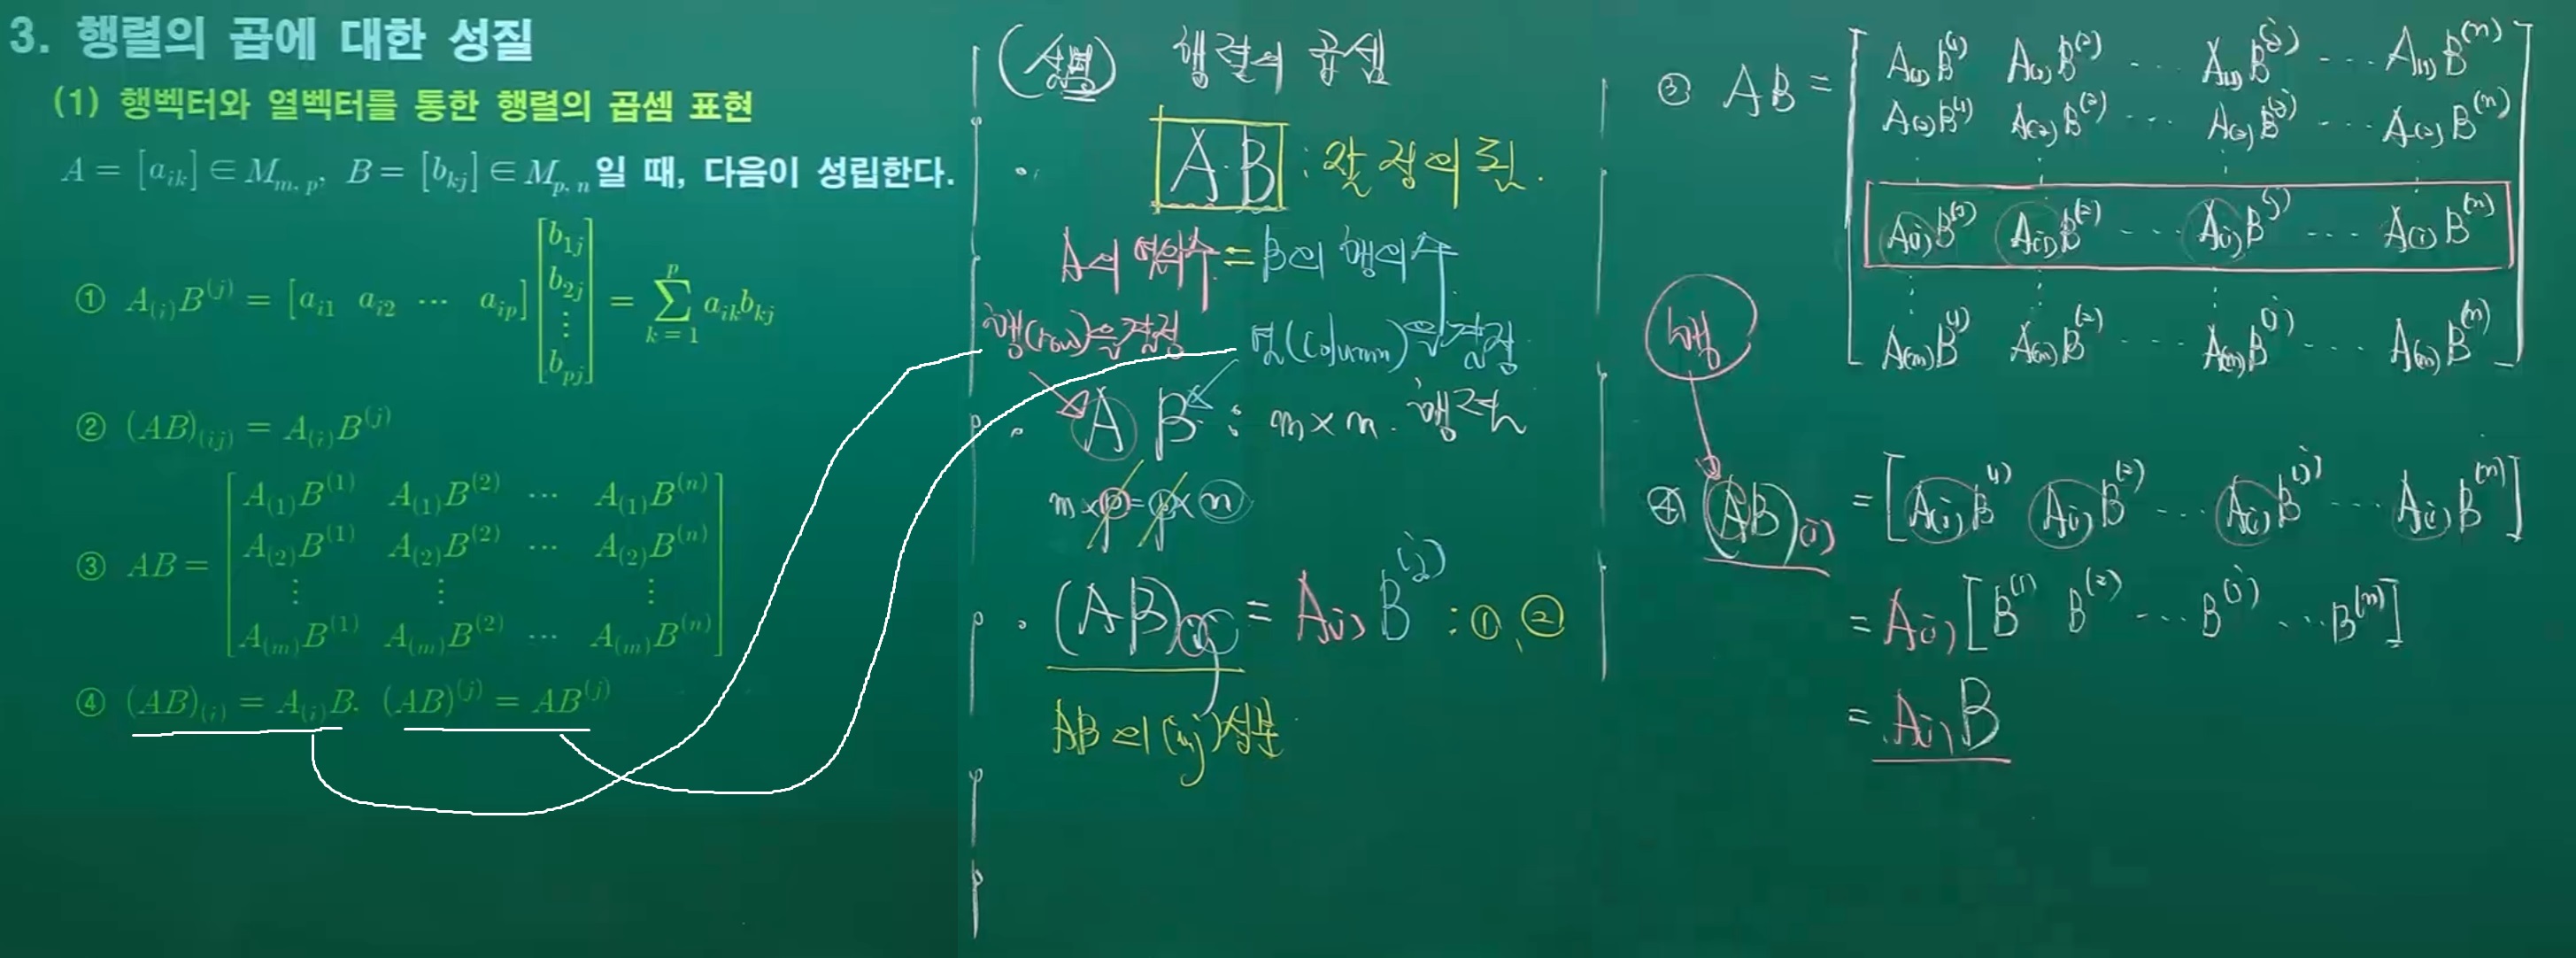 3. 행렬의 곱에 대한 성질
(1) 행벡터와 열벡터를 통한 행렬의 곱셈 표현
A = [a_{ik}] ∈ M_{m, p}, B = [b_{kj}] ∈ M_{p, n} 일 때, 다음이 성립한다.
① A_{(i)}B^{(j)} = [a_{i1} a_{i2} ⋯ a_{ip}] [b_{1j} b_{2j} ⋮ b_{pj}] = ∑_{k=1}^{p} a_{ik}b_{kj}
② (AB)_{(ij)} = A_{(i)}B^{(j)}
③ AB = [
A_{(1)}B^{(1)} A_{(1)}B^{(2)} ⋯ A_{(1)}B^{(n)}
A_{(2)}B^{(1)} A_{(2)}B^{(2)} ⋯ A_{(2)}B^{(n)}
⋮ ⋮ ⋮
A_{(m)}B^{(1)} A_{(m)}B^{(2)} ⋯ A_{(m)}B^{(n)}
]
④ (AB)_{(i)} = A_{(i)}B, (AB)^{(j)} = AB^{(j)}
(설명) 행렬의 곱셈
· A·B : 잘 정의됨.
A의 열의수 = B의 행의수
행(row)을 결정 열(column)을 결정
· A B : m×n 행렬
m×p = p×n
· (AB)_{(ij)} = A_{(i)} B^{(j)} : ①, ②
AB의 (i,j)성분
③ AB = [
A_{(1)}B^{(1)} A_{(1)}B^{(2)} ⋯ A_{(1)}B^{(j)} ⋯ A_{(1)}B^{(n)}
A_{(2)}B^{(1)} A_{(2)}B^{(2)} ⋯ A_{(2)}B^{(j)} ⋯ A_{(2)}B^{(n)}
⋮ ⋮ ⋮ ⋮
A_{(i)}B^{(1)} A_{(i)}B^{(2)} ⋯ A_{(i)}B^{(j)} ⋯ A_{(i)}B^{(n)}
⋮ ⋮ ⋮ ⋮
A_{(m)}B^{(1)} A_{(m)}B^{(2)} ⋯ A_{(m)}B^{(j)} ⋯ A_{(m)}B^{(n)}
]
행
④ (AB)_{(i)} = [A_{(i)}B^{(1)} A_{(i)}B^{(2)} ⋯ A_{(i)}B^{(j)} ⋯ A_{(i)}B^{(n)}]
= A_{(i)} [B^{(1)} B^{(2)} ⋯ B^{(j)} ⋯ B^{(n)}]
= A_{(i)} B